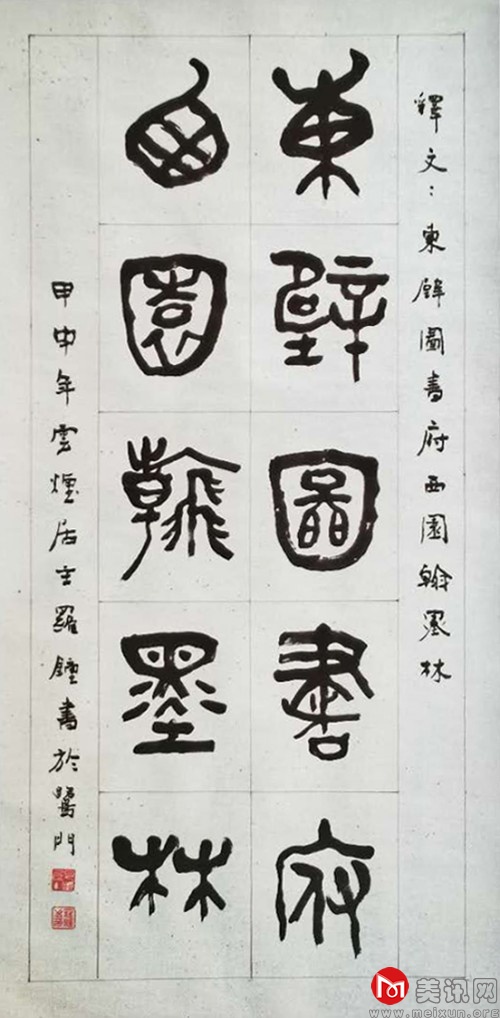 釋文：東壁圖書府西園翰墨林
東壁圖書府
西園翰墨林
甲申年雲煙居主羅鍾書於鷺門
美讯网
www.meixun.org